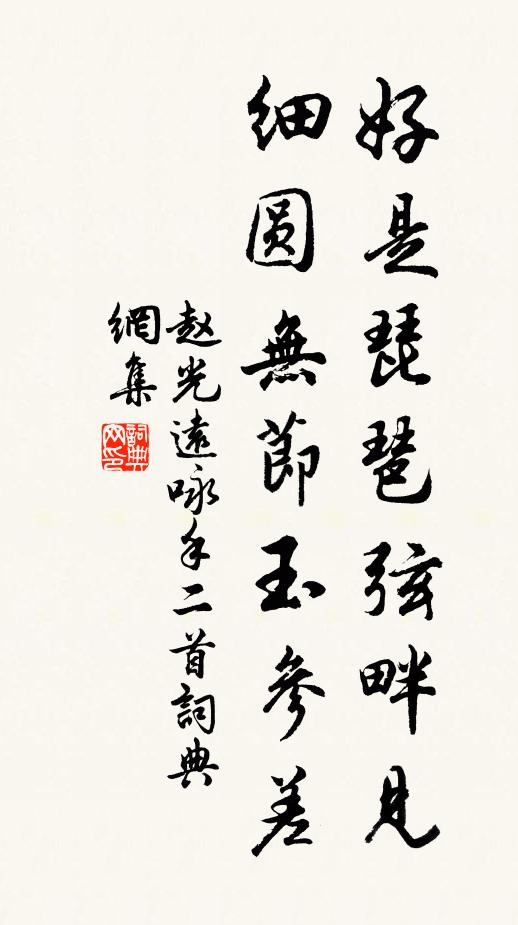 好是琵琶弦畔見
細圓無節玉參差
赵光遠咏手二首詞典
網集
詞典网印